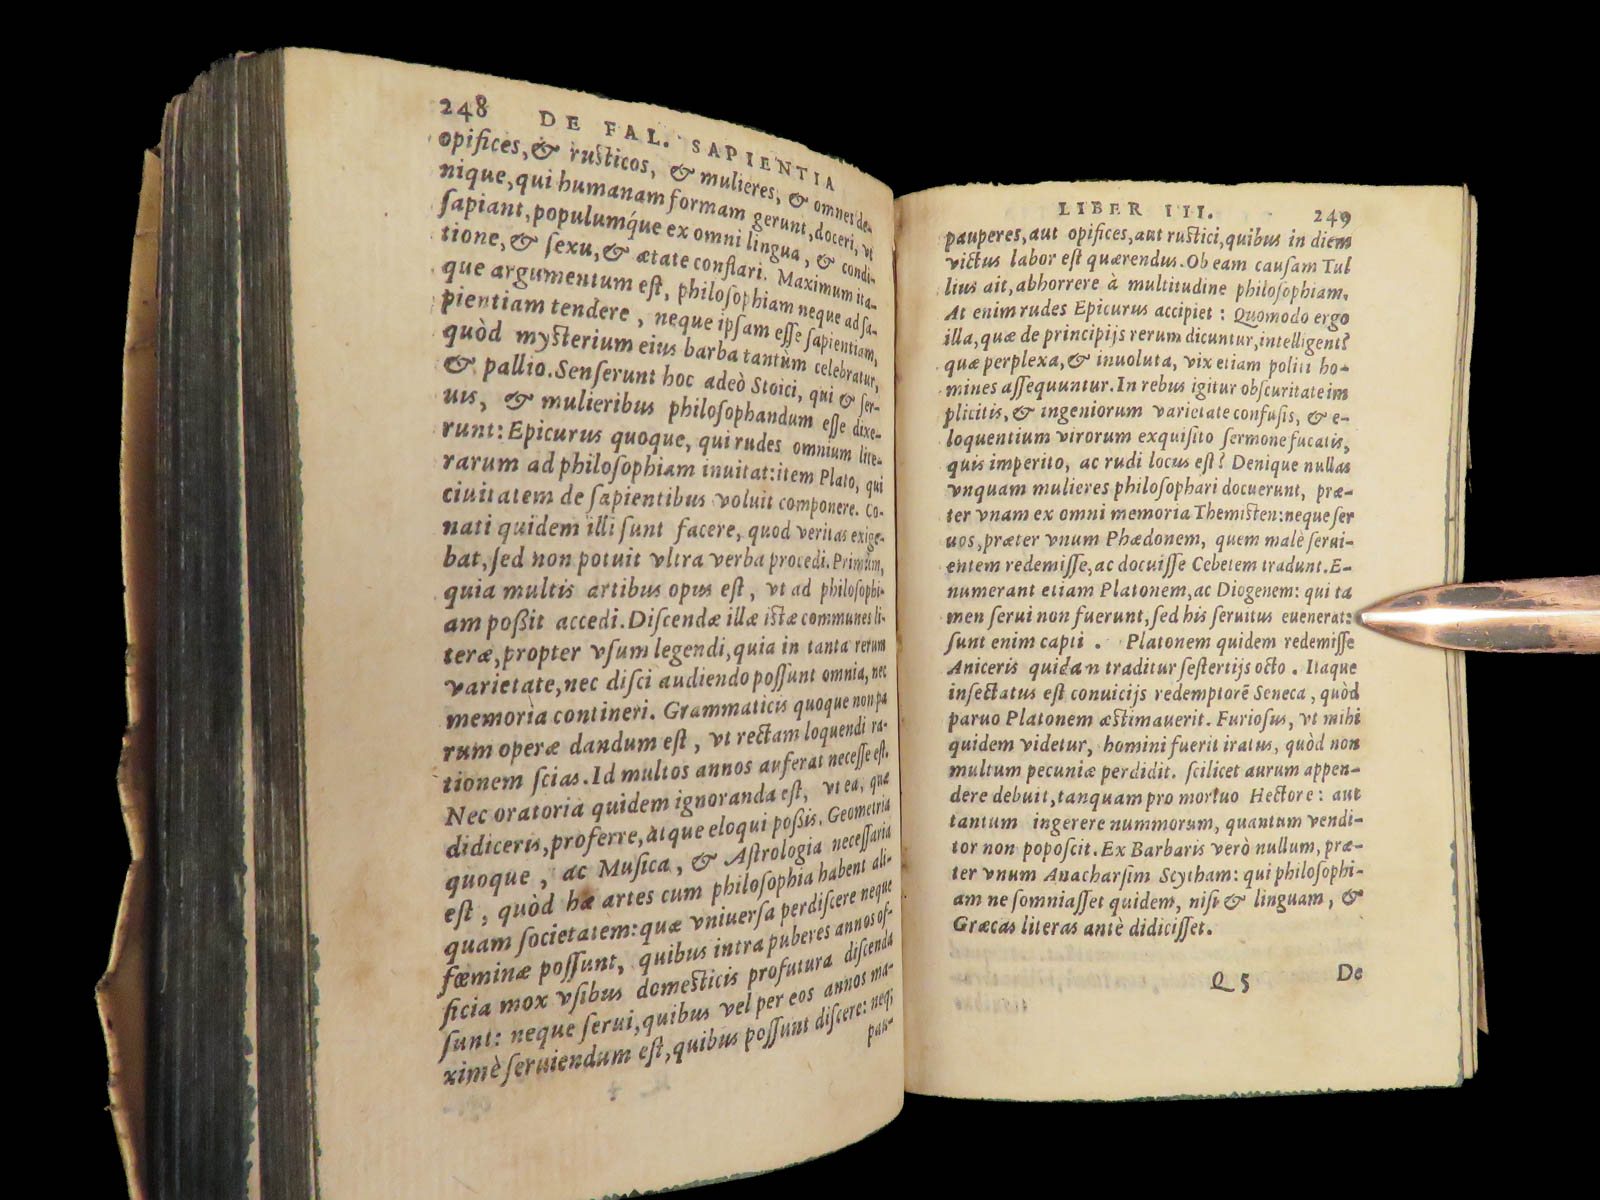 248 DE FAL. SAPIENTIA
opifices, & rusticos, & mulieres, & omnes de-
nique, qui humanam formam gerunt, doceri, vt
sapiant, populumq́ue ex omni lingua, & condi-
tione, & sexu, & ætate conflari. Maximum ita-
que argumentum est, philosophiam neque ad sa-
pientiam tendere, neque ipsam esse sapientiam,
quòd mysterium eius barba tantùm celebratur,
& pallio. Senserunt hoc adeò Stoici, qui & ser-
uis, & mulieribus philosophandum esse dixe-
runt: Epicurus quoque, qui rudes omnium lite-
rarum ad philosophiam inuitat: item Plato, qui
ciuitatem de sapientibus voluit componere. Co-
nati quidem illi sunt facere, quod veritas exige-
bat, sed non potuit vltra verba procedi. Primùm,
quia multis artibus opus est, vt ad philosophi-
am poßit accedi. Discendæ illæ istæ communes li-
teræ, propter vsum legendi, quia in tanta rerum
varietate, nec disci audiendo possunt omnia, nec
memoria contineri. Grammaticis quoque non pa
rum operæ dandum est, vt rectam loquendi ra-
tionem scias. Id multos annos auferat necesse est.
Nec oratoria quidem ignoranda est, vt ea, quæ
didiceris, proferre, atque eloqui poßis. Geometria
quoque, ac Musica, & Astrologia necessaria
est, quòd hæ artes cum philosophia habent ali-
quam societatem: quæ vniuersa perdiscere neque
fœminæ possunt, quibus intra puberes annos of-
ficia mox vsibus domesticis profutura discenda
sunt: neque serui, quibus vel per eos annos ma-
ximè seruiendum est, quibus possunt discere: neq;
pau-
LIBER III. 249
pauperes, aut opifices, aut rustici, quibus in diem
victus labor est quærendus. Ob eam causam Tul
lius ait, abhorrere à multitudine philosophiam.
At enim rudes Epicurus accipiet: Quomodo ergo
illa, quæ de principijs rerum dicuntur, intelligent?
quæ perplexa, & inuoluta, vix etiam politi ho-
mines assequuntur. In rebus igitur obscuritate im
plicitis, & ingeniorum varietate confusis, & e-
loquentium virorum exquisito sermone fucatis,
quis imperito, ac rudi locus est? Denique nullas
vnquam mulieres philosophari docuerunt, præ-
ter vnam ex omni memoria Themisten: neque ser
uos, præter vnum Phædonem, quem malè serui-
entem redemisse, ac docuisse Cebetem tradunt. E-
numerant etiam Platonem, ac Diogenem: qui ta
men serui non fuerunt, sed his seruitus euenerat:
sunt enim capti. Platonem quidem redemisse
Aniceris quidan traditur sestertijs octo. Itaque
insectatus est conuicijs redemptorē Seneca, quòd
paruo Platonem æstimauerit. Furiosus, vt mihi
quidem videtur, homini fuerit iratus, quòd non
multum pecuniæ perdidit. scilicet aurum appen-
dere debuit, tanquam pro mortuo Hectore: aut
tantum ingerere nummorum, quantum vendi-
tor non poposcit. Ex Barbaris verò nullum, præ-
ter vnum Anacharsim Scytham: qui philosophi-
am ne somniasset quidem, nisi & linguam, &
Græcas literas antè didicisset.
Q 5 De